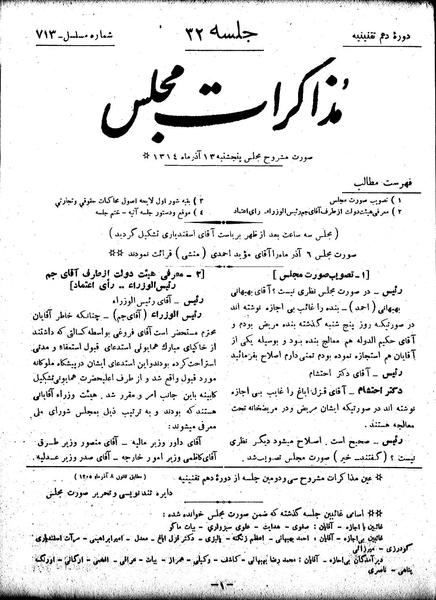 دورهٔ دهم تقنینیه
جلسه ۳۲
شماره مسلسل - ۷۱۳
مذاکرات مجلس
صورت مشروح مجلس پنجشنبه ۱۳ آذر ماه ۱۳۱۴ ※
فهرست مطالب
۱) تصویب صورت مجلس
۲) معرفی هیئت دولت از طرف آقای جم رئیس الوزراء. رأی اعتماد
۳) بقیه شور اول لایحه اصول محاکمات حقوقی و تجارتی
۴) موقع و دستور جلسه آتیه - ختم جلسه
(مجلس سه ساعت بعد از ظهر بریاست آقای اسفندیاری تشکیل گردید)
صورت مجلس ۶ آذر ماه را آقای مؤید احمدی (منشی) قرائت نمودند ※※
[۱ - تصویب صورت مجلس]
رئیس - در صورت مجلس نظری نیست؟ آقای بهبهانی
بهبهانی (احمد) - بنده را غائب بی اجازه نوشته اند
در صورتیکه روز پنج شنبه گذشته بنده مریض بودم و
آقای حکیم الدوله هم معالج بنده بود و بوسیله یکی از
آقایان هم استجازه نموده بودم تمنی دارم اصلاح بفرمائید
رئیس - آقای دکتر احتشام
دکتر احتشام - آقای قزل ایاغ را غایب بی اجازه
نوشته اند در صورتیکه ایشان مریض و در مریضخانه تحت
معالجه هستند.
رئیس - صحیح است. اصلاح میشود دیگر نظری
نیست؟ (گفتند - خیر) صورت مجلس تصویب شد.
[۲ - معرفی هیئت دولت از طرف آقای جم
رئیس الوزراء .. رأی اعتماد]
رئیس - آقای رئیس الوزراء
رئیس الوزراء (آقای جم) - چنانکه خاطر آقایان
محترم مستحضر است آقای فروغی بواسطه کسالتی که داشتند
از خاکپای مبارک همایونی استدعای قبول استعفاء و مدتی
استراحت کرده بودند و این استدعای ایشان در پیشگاه ملوکانه
مورد قبول واقع شد و از طرف اعلیحضرت همایونی تشکیل
کابینه باین جانب امر و مقرر شد. هیئت وزراء آقایانی
هستند که بودند و به ترتیب ذیل بمجلس شورای ملی
معرفی میشوند:
آقای داور وزیر مالیه - آقای منصور وزیر طرق
آقای کاظمی وزیر امور خارجه - آقای صدر وزیر عدلیه.
※ عین مذاکرات مشروح سی و دومین جلسه از دورهٔ دهم تقنینیه (مطابق قانون ۸ آذر ماه ۱۳۰۵)
دایره تند نویسی و تحریر صورت مجلس
※※ اسامی غائبین جلسه گذشته که ضمن صورت مجلس خوانده شده:
غائبین با اجازه - آقایان: صفوی - هدایت - علوی سبزواری - بیات ماکو
غائبین بی اجازه - آقایان: احمد بهبهانی - اعظم زنگنه - پالیزی - دکتر قزل ایاغ - معدل - امیر ابراهیمی - مرآت اسفندیاری
گودرزی - میرزائی
دیر آمدگان بی اجازه - آقایان: محمد رضا بهبهانی - کاشف - وکیلی - همراز - بیات - عراقی - افخمی - ارکانی - اورنگ
پناهی - ناصری
-۱-